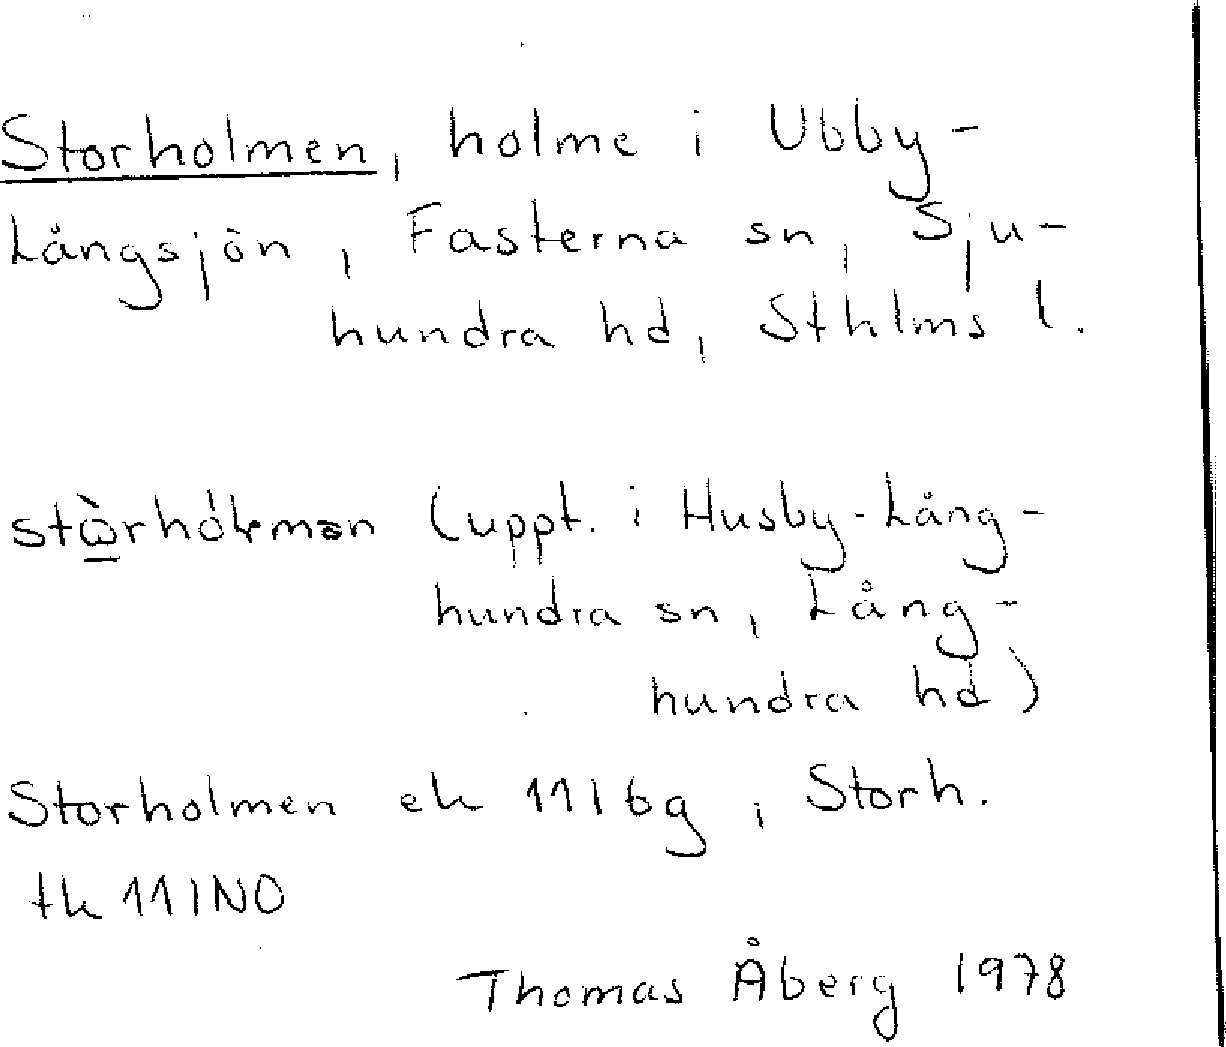 Storholmen, holme i Ubby-
Långsjön, Fasterna sn, Sju-
hundra hd, Sthlms l.
stὼ̲rhól̵mən (uppt. i Husby-Lång-
hundra sn, Lång-
hundra hd)
Storholmen ek 11I 6g, Storh.
tk 11INO
Thomas Åberg 1978